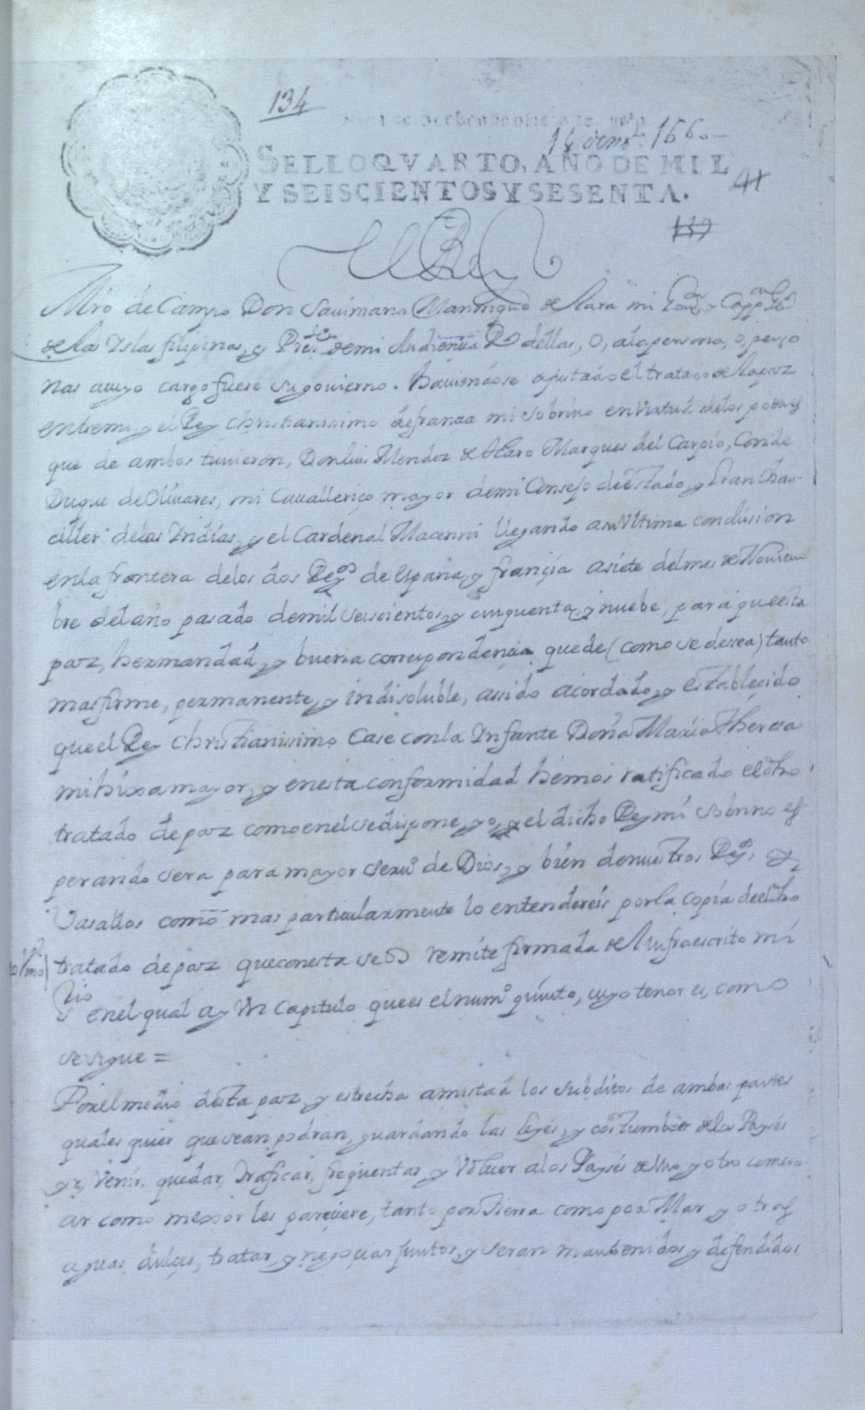 134
1660
SELLO QVARTO, AÑO DE MIL
Y SEISCIENTOS Y SESENTA.
41
139
El Rey
Mro de Campo Don Savimano Manrrique de Lara mi Gov.or y Capp.an
de las Islas filipinas, y Pres.te de mi Audiencia R dellas, o, ala persona, o, perso
nas a cuyo cargo fuere su govierno. haviendose ajustado el tratado de la paz
entremi, y el Rey christianissimo de francia mi sobrino en virtud delos poderes
que de ambos tuvieron, Don luis Mendez de Haro Marques del Carpio, Conde
Duque de Olivares, mi Cavallerizo mayor de mi Consejo de estado, y Gran Chan-
ciller delas Indias, y el Cardenal Macarini llegando a su Ultima conclusion
en la frontera delos dos Rey.os de españa, y françia a siete del mes de Noviem
bre del año pasado de mil seiscientos, y cinquenta, y nuebe, para que esta
paz, hermandad, y buena correspondencia quede (como se desea) tanto
mas firme, permanente, y indisoluble, assido acordado, y establecido
que el Rey christianisimo Case con la Infante Doña Maria Theresa
mi hixa mayor, y en esta conformidad hemos ratificado el dho
tratado de paz como en el se dispone, yo, y el dicho Rey mi sobrino es
perando sera para mayor serui.o de Dios, y bien de nuestros Rey.os, y
Vasallos como mas particularmente lo entendereis por la copia de el dho
tratado de paz que con esta se os remite firmada de Infraescrito mi
s.rio en el qual ay Un Capitulo que es el num.o quinto, cuyo tenor es, como
se sigue =
Por el medio desta paz, y estrecha amistad los subditos de ambas partes
quales quier que sean podran, guardando las leyes, y costumbres de los Payses
yr, venir, quedar, traficar, frequentar, y Volver a los Payses de Uno, y otro comerci
ar como mexor les pareciere, tanto por tierra como por Mar, y otras
aguas dulçes, tratar, y negociar juntos, y seran mantenidos, y defendidos